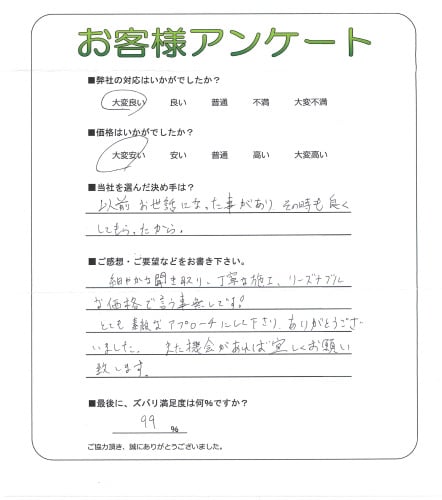 お客様アンケート
■弊社の対応はいかがでしたか?
大変良い 良い 普通 不満 大変不満
■価格はいかがでしたか?
大変安い 安い 普通 高い 大変高い
■当社を選んだ決め手は?
以前お世話になった事があり その時も良く
してもらったから。
■ご感想・ご要望などをお書き下さい。
細やかな聞き取り、丁寧な施工、リーズナブル
な価格で言う事無しです!
とても素敵なアプローチにして下さり ありがとうござ
いました。 また機会があれば宜しくお願い
致します。
■最後に、ズバリ満足度は何%ですか?
99 %
ご協力頂き、誠にありがとうございました。